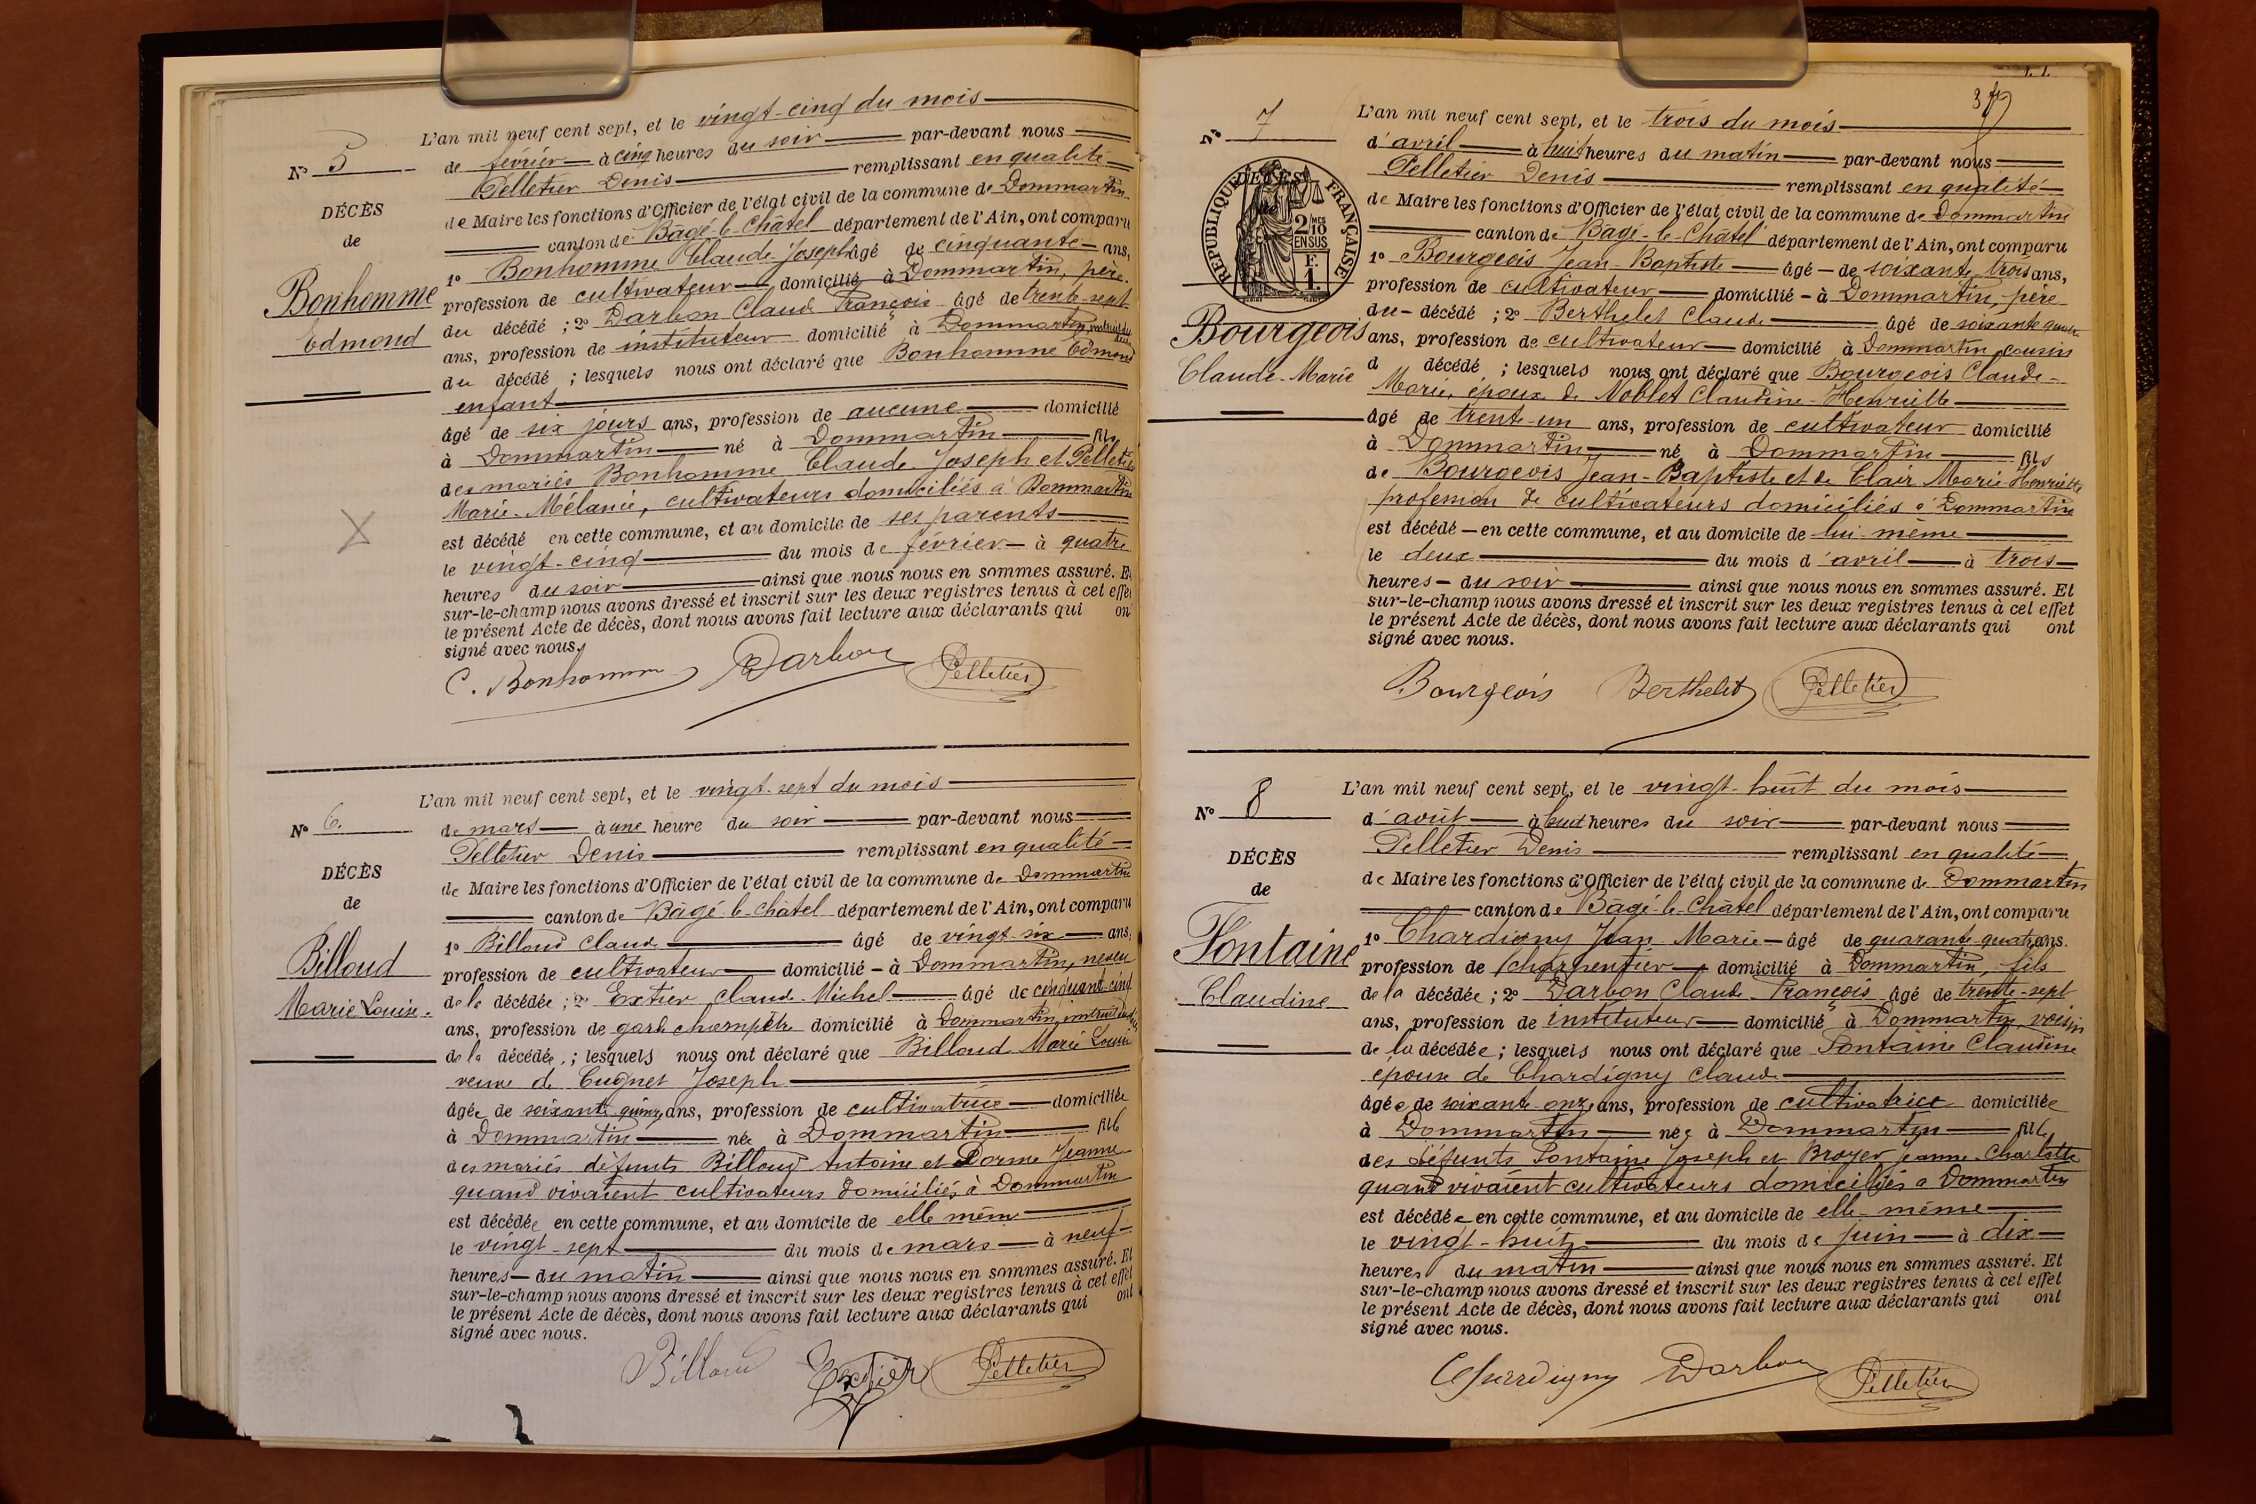 L'an mil neuf cent sept, et le vingt-cinq du mois
N° 5
de février à cinq heures du soir par-devant nous
Pelletier Denis remplissant en qualité
DÉCÈS
de Maire les fonctions d'Officier de l'état civil de la commune de Dommartin
de
canton de Bâgé-le-Châtel département de l'Ain, ont comparu
1° Bonhomme Claude-Joseph âgé de cinquante ans,
Bonhomme
profession de cultivateur domicilié à Dommartin, père
Edmond
du décédé ; 2° Darbon Claude François âgé de trente-sept
ans, profession de instituteur domicilié à Dommartin,
du décédé ; lesquels nous ont déclaré que Bonhomme Edmond
enfant
âgé de six jours ans, profession de aucune domicilié
à Dommartin né à Dommartin fils
des mariés Bonhomme Claude-Joseph et Pelletier
Marie-Mélanie, cultivateurs domiciliés à Dommartin
est décédé en cette commune, et au domicile de ses parents
le vingt-cinq du mois de février à quatre
heures du soir ainsi que nous nous en sommes assuré. Et
sur-le-champ nous avons dressé et inscrit sur les deux registres tenus à cet effet
le présent Acte de décès, dont nous avons fait lecture aux déclarants qui ont
signé avec nous.
C. Bonhomme Darbon Pelletier
L'an mil neuf cent sept, et le vingt-sept du mois
N° 6.
de mars à une heure du soir par-devant nous
Pelletier Denis remplissant en qualité
DÉCÈS
de Maire les fonctions d'Officier de l'état civil de la commune de Dommartin
de
canton de Bâgé-le-Châtel département de l'Ain, ont comparu
1° Billoud Claude âgé de vingt-six ans,
Billoud
profession de cultivateur domicilié à Dommartin, neveu
Marie Louise.
de la décédée ; 2° Extier Claude-Michel âgé de cinquante-cinq
ans, profession de garde champêtre domicilié à Dommartin,
de la décédée ; lesquels nous ont déclaré que Billoud Marie Louise
veuve de Cugnet Joseph
âgée de soixante quinze ans, profession de cultivatrice domiciliée
à Dommartin née à Dommartin fille
des mariés défunts Billoud Antoine et Dorme Jeanne
quand vivaient cultivateurs domiciliés à Dommartin
est décédée en cette commune, et au domicile de elle même
le vingt-sept du mois de mars à neuf
heures du matin ainsi que nous nous en sommes assuré. Et
sur-le-champ nous avons dressé et inscrit sur les deux registres tenus à cet effet
le présent Acte de décès, dont nous avons fait lecture aux déclarants qui ont
signé avec nous.
Billoud Extier Pelletier
L'an mil neuf cent sept, et le trois du mois
N° 7
d'avril à huit heures du matin par-devant nous
Pelletier Denis remplissant en qualité
RÉPUBLIQUE FRANÇAISE
2/10 EN SUS
F. 1.
de Maire les fonctions d'Officier de l'état civil de la commune de Dommartin
canton de Bâgé-le-Châtel département de l'Ain, ont comparu
1° Bourgeois Jean-Baptiste âgé de soixante-trois ans,
profession de cultivateur domicilié à Dommartin, père
du décédé ; 2° Berthelet Claude âgé de soixante quatre
Bourgeois
ans, profession de cultivateur domicilié à Dommartin, cousin
Claude-Marie
d décédé ; lesquels nous ont déclaré que Bourgeois Claude-
Marie, époux de Noblet Claudine-Henriette
âgé de trente-un ans, profession de cultivateur domicilié
à Dommartin né à Dommartin fils
de Bourgeois Jean-Baptiste et de Clair Marie-Henriette
profession de cultivateurs domiciliés à Dommartin
est décédé en cette commune, et au domicile de lui-même
le deux du mois d'avril à trois
heures du soir ainsi que nous nous en sommes assuré. Et
sur-le-champ nous avons dressé et inscrit sur les deux registres tenus à cet effet
le présent Acte de décès, dont nous avons fait lecture aux déclarants qui ont
signé avec nous.
Bourgeois Berthelet Pelletier
L'an mil neuf cent sept, et le vingt-huit du mois
N° 8
d'août à huit heures du soir par-devant nous
Pelletier Denis remplissant en qualité
DÉCÈS
de Maire les fonctions d'Officier de l'état civil de la commune de Dommartin
de
canton de Bâgé-le-Châtel département de l'Ain, ont comparu
Fontaine
1° Chardigny Jean Marie âgé de quarante-quatre ans.
profession de charpentier domicilié à Dommartin, fils
Claudine
de la décédée ; 2° Darbon Claude-François âgé de trente-sept
ans, profession de instituteur domicilié à Dommartin, voisin
de la décédée ; lesquels nous ont déclaré que Fontaine Claudine
épouse de Chardigny Claude
âgée de soixante-onze ans, profession de cultivatrice domiciliée
à Dommartin née à Dommartin fille
des défunts Fontaine Joseph et Broyer Jeanne-Charlotte
quand vivaient cultivateurs domiciliés à Dommartin
est décédée en cette commune, et au domicile de elle-même
le vingt-huit du mois de juin à dix
heures du matin ainsi que nous nous en sommes assuré. Et
sur-le-champ nous avons dressé et inscrit sur les deux registres tenus à cet effet
le présent Acte de décès, dont nous avons fait lecture aux déclarants qui ont
signé avec nous.
Chardigny Darbon Pelletier